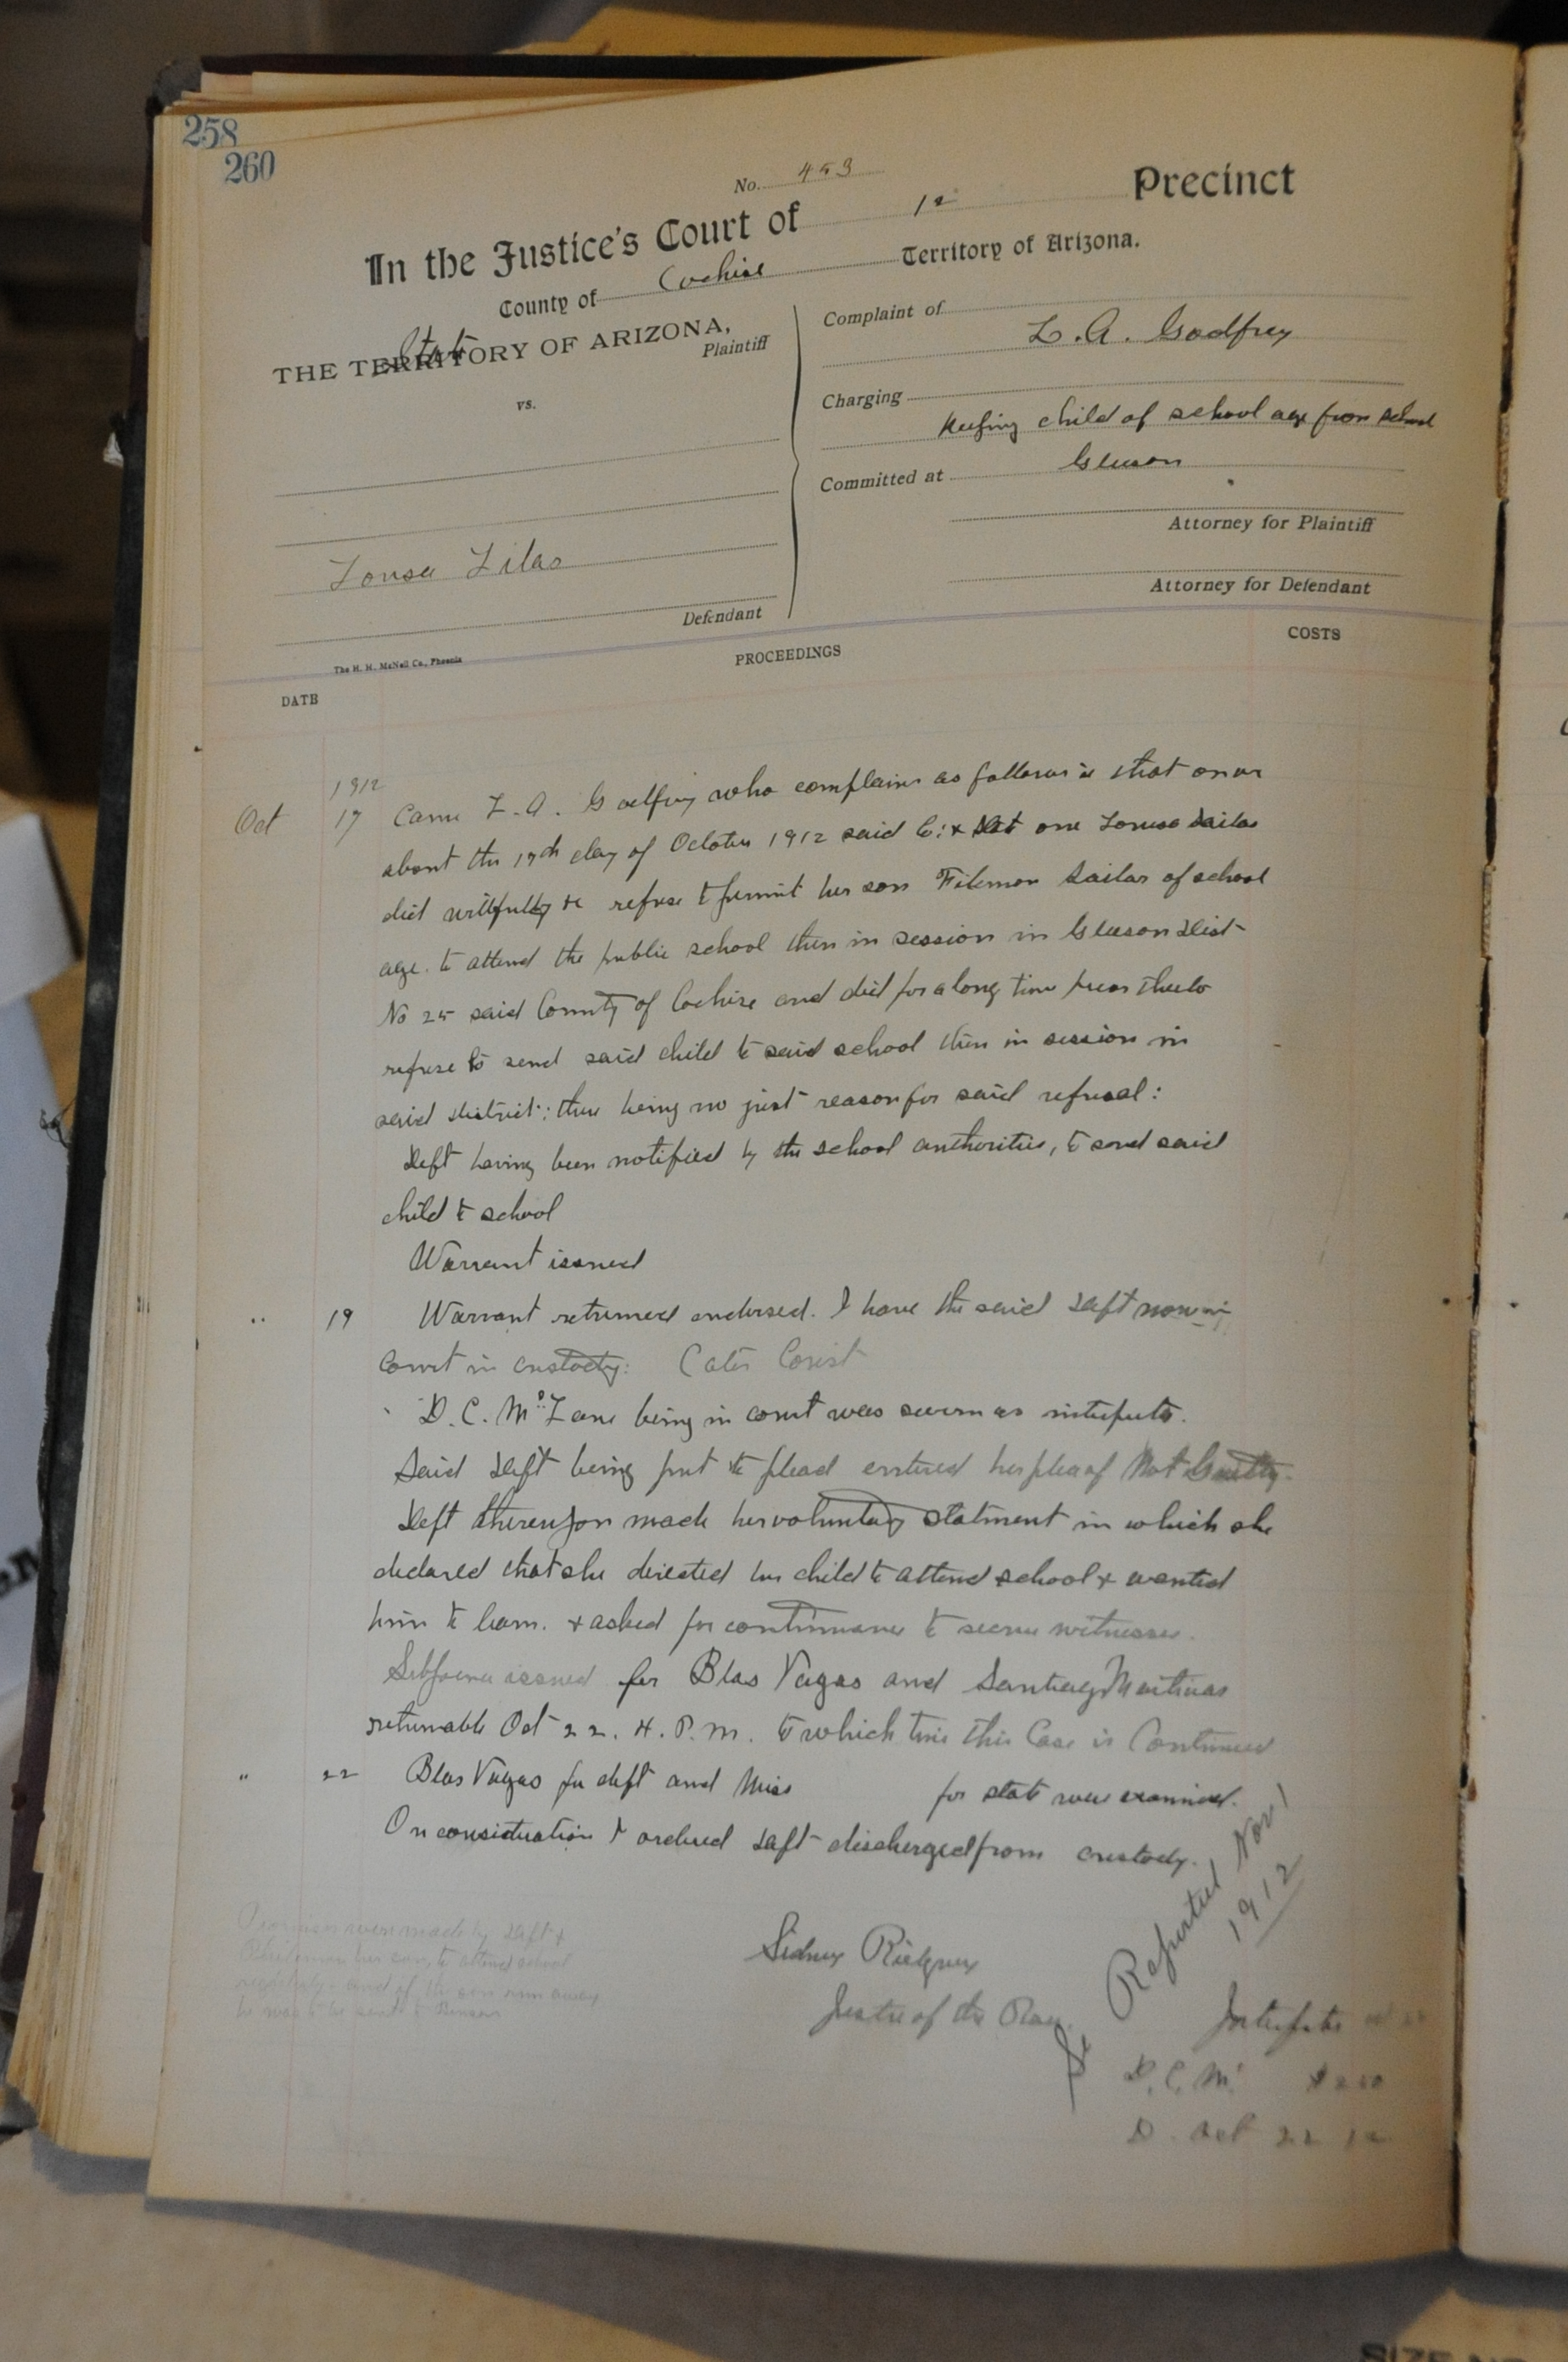 258
260
No. 453
In the Justice's Court of 12 Precinct
County of Cochise Territory of Arizona.
State
THE TERRITORY OF ARIZONA,
Plaintiff
vs.
Defendant
Complaint of
L. A. Godfrey
Charging
Keeping child of school age from school
Committed at Gleeson
Attorney for Plaintiff
Attorney for Defendant
The H. H. McNeil Co., Phoenix
DATE
PROCEEDINGS
COSTS
1912
Oct 17 Came L. A. Godfrey who complains as follows: that on or
about the 17th day of October 1912 said Co: & one
did willfully refuse to permit her son Filemon Sailas of school
age. to attend the public school then in session in Gleeson Dist
No 25 said County of Cochise and did for a long time thereto
refuse to send said child to said school then in session in
said District: there being no just reason for said refusal:
Deft having been notified by the school authorities, to send said
child to school
Warrant issued
" 19 Warrant returned endorsed. I have the said Deft now in
Court in custody:
D. C. McLane being in court was sworn as
Said Deft being put to plead entered her plea of Not Guilty.
Deft thereupon made her voluntary statment in which she
declared that she directed her child to attend school & wanted
him to learn. & asked for continuance to secure witnesses.
issued for Blas Vagas and Santiago
returnable Oct 22. 4. P. M. to which time this Case is Continued
" 22 Blas Vagas for deft and Miss for state were examined.
On consideration I ordered Deft discharged from custody.
made by Deft &
her son, to attend school
and if the son run away
he was to be sent to Benson
Sidney
Justice of the
Reported Nov 1
1912
D. C. M.
Oct 22 12